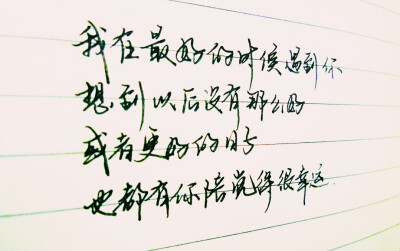 我在最好的时候遇到你
想到以后没有那么好
或者更好的日子
也都有你陪觉得很幸运